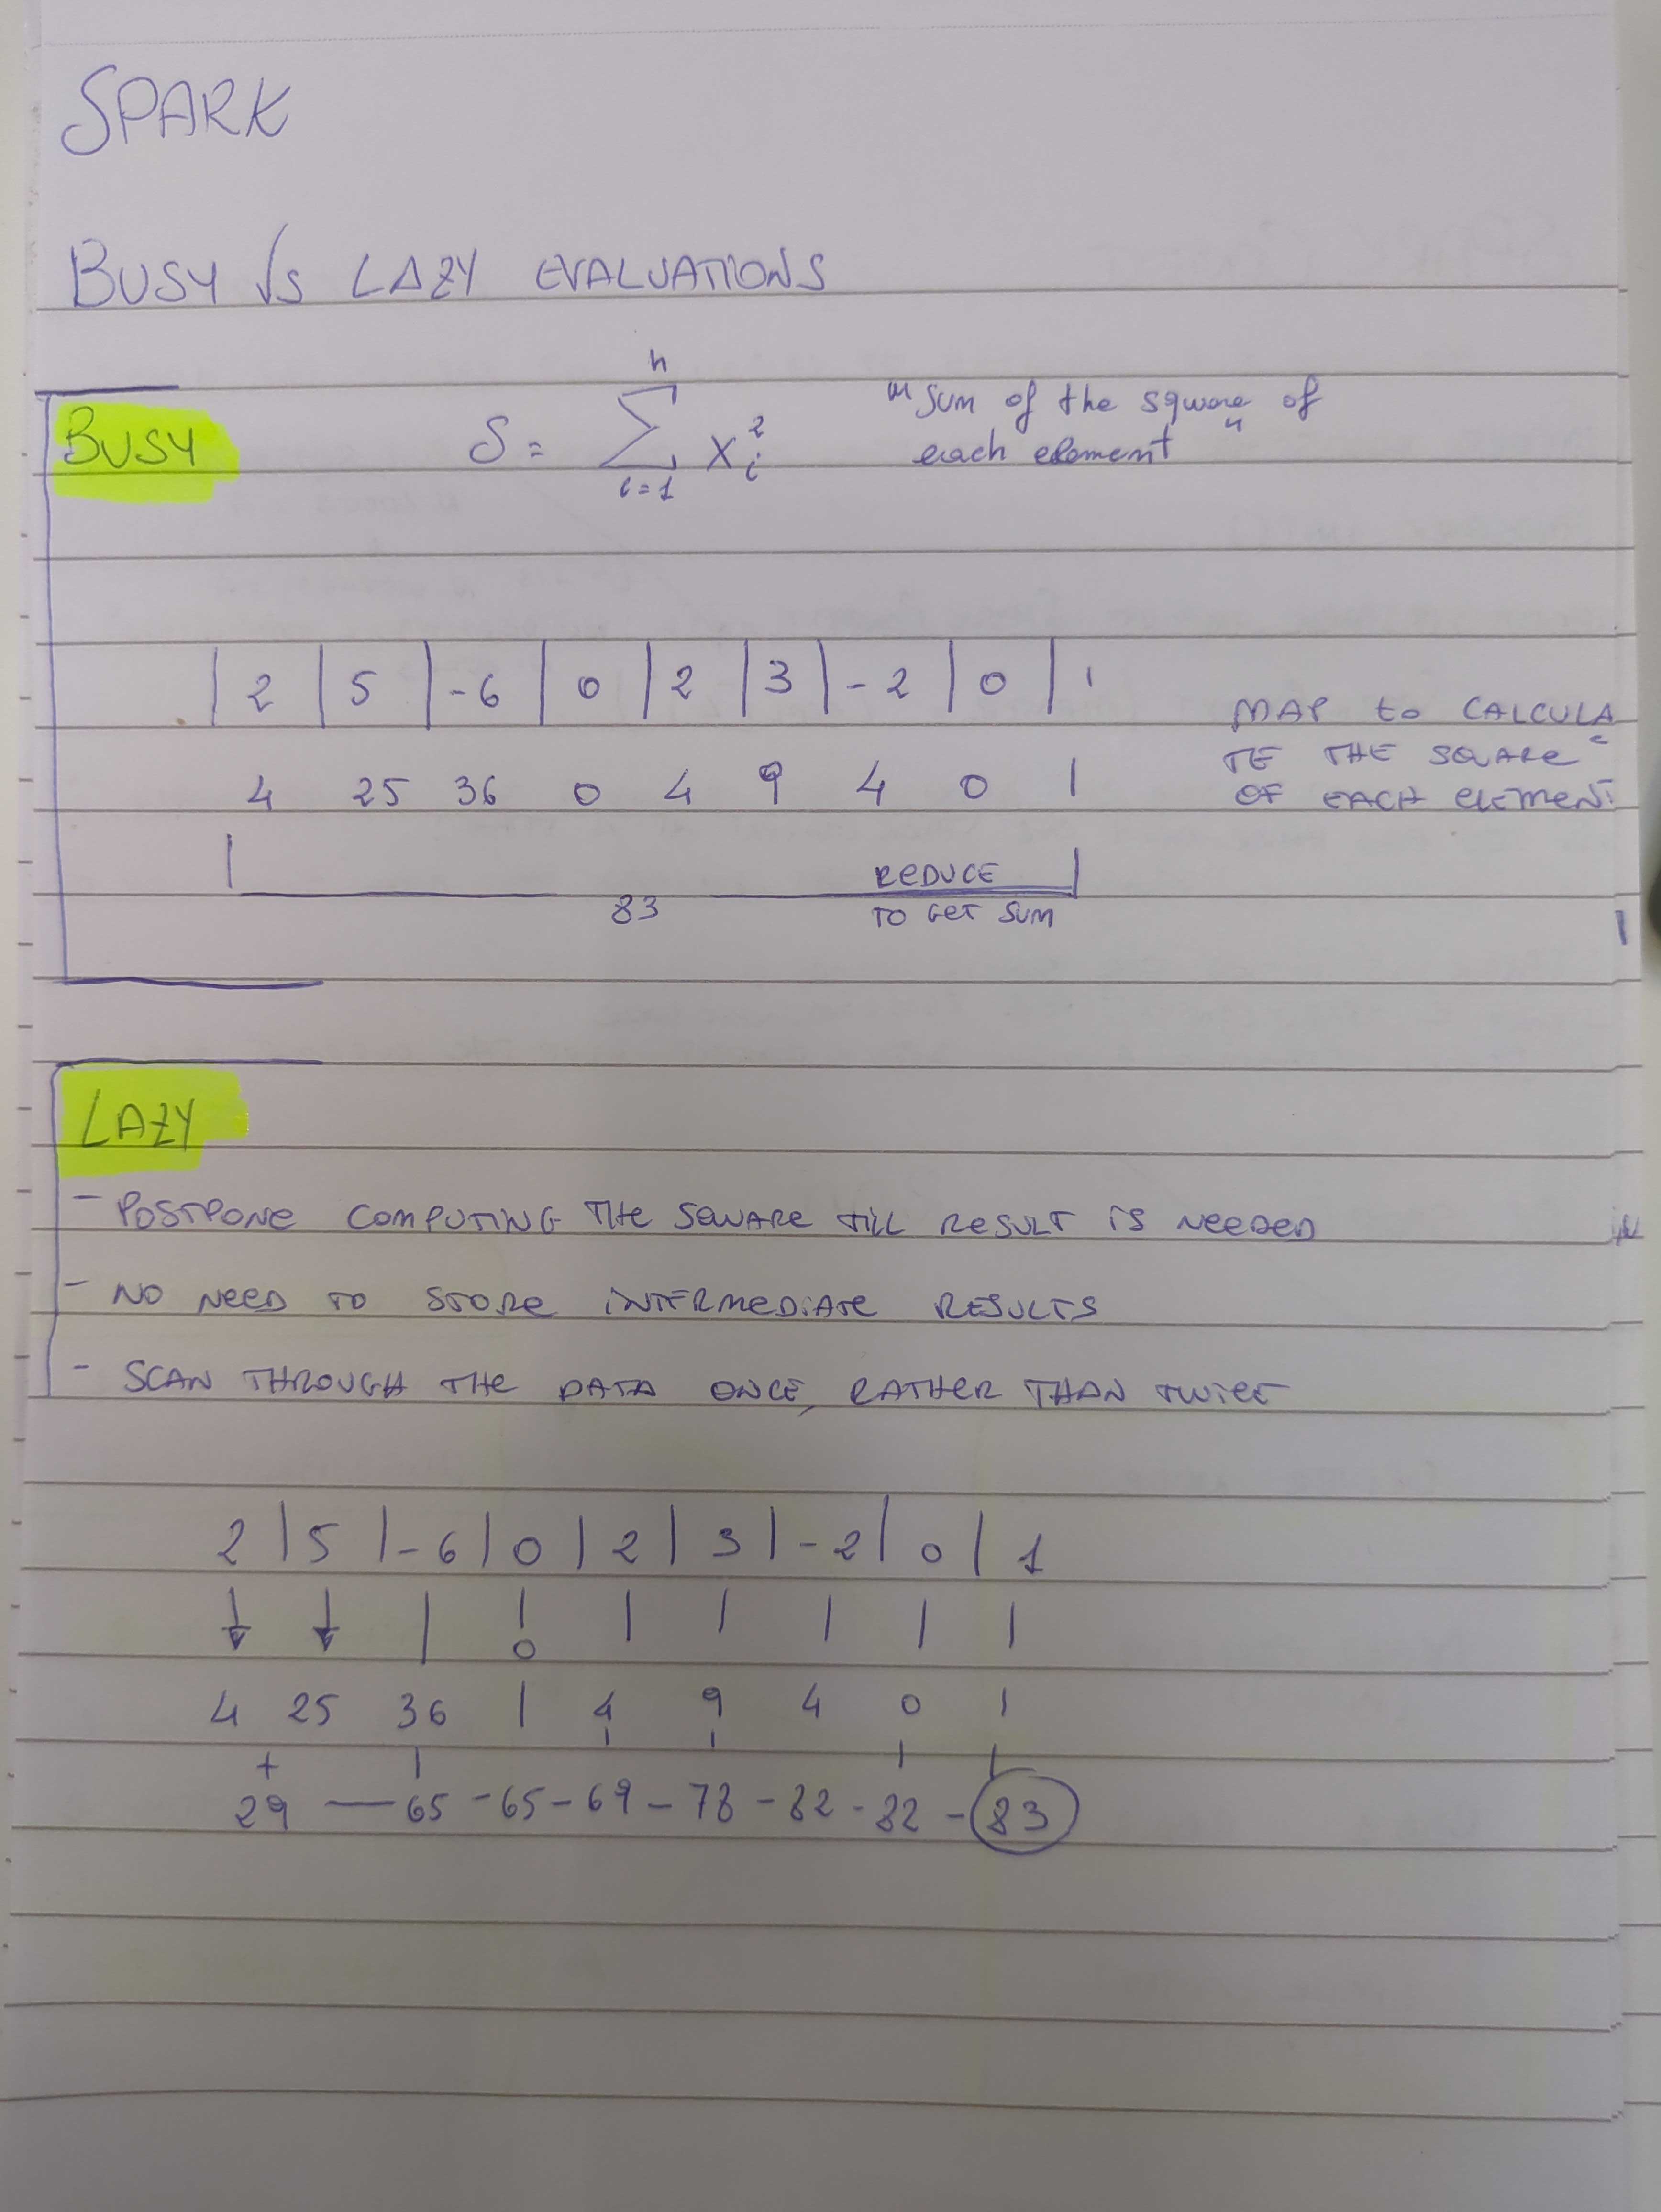 SPARK
BUSY Vs LAZY EVALUATIONS
BUSY
n
S = ∑ x_i^2
i=1
"sum of the square of
each element"
| 2 | 5 | -6 | 0 | 2 | 3 | -2 | 0 | 1
MAP to CALCULA
TE THE SQUARE
OF EACH ELEMENT
4 25 36 0 4 9 4 0 1
REDUCE
83 TO GET SUM
LAZY
- POSTPONE COMPUTING THE SQUARE TILL RESULT IS NEEDED
- NO NEED TO STORE INTERMEDIATE RESULTS
- SCAN THROUGH THE DATA ONCE, RATHER THAN TWICE
2 | 5 | -6 | 0 | 2 | 3 | -2 | 0 | 1
0
4 25 36 | 4 9 4 0 1
+
29 — 65 - 65 - 69 - 78 - 82 - 82 - 83